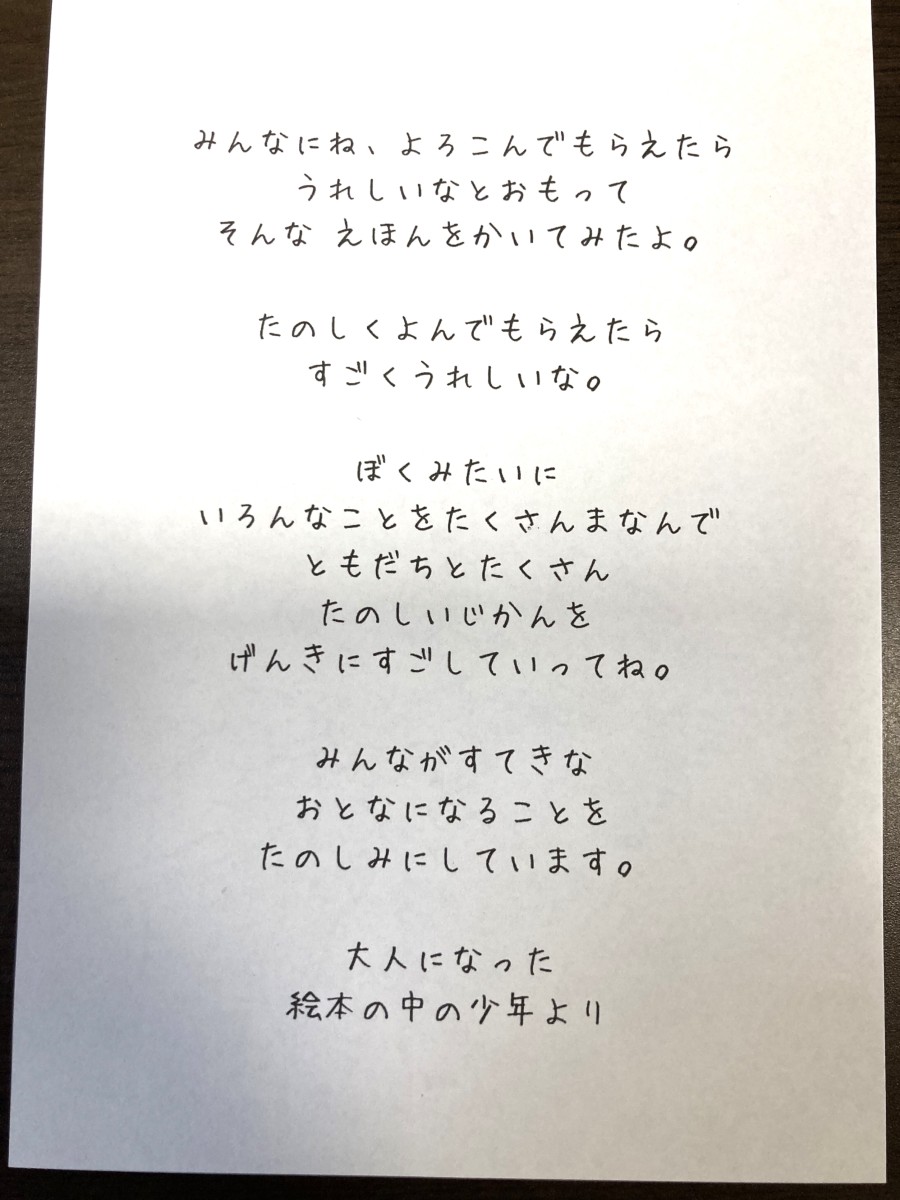 みんなにね、よろこんでもらえたら
うれしいなとおもって
そんな えほんをかいてみたよ。
たのしくよんでもらえたら
すごくうれしいな。
ぼくみたいに
いろんなことをたくさんまなんで
ともだちとたくさん
たのしいじかんを
げんきにすごしていってね。
みんながすてきな
おとなになることを
たのしみにしています。
大人になった
絵本の中の少年より